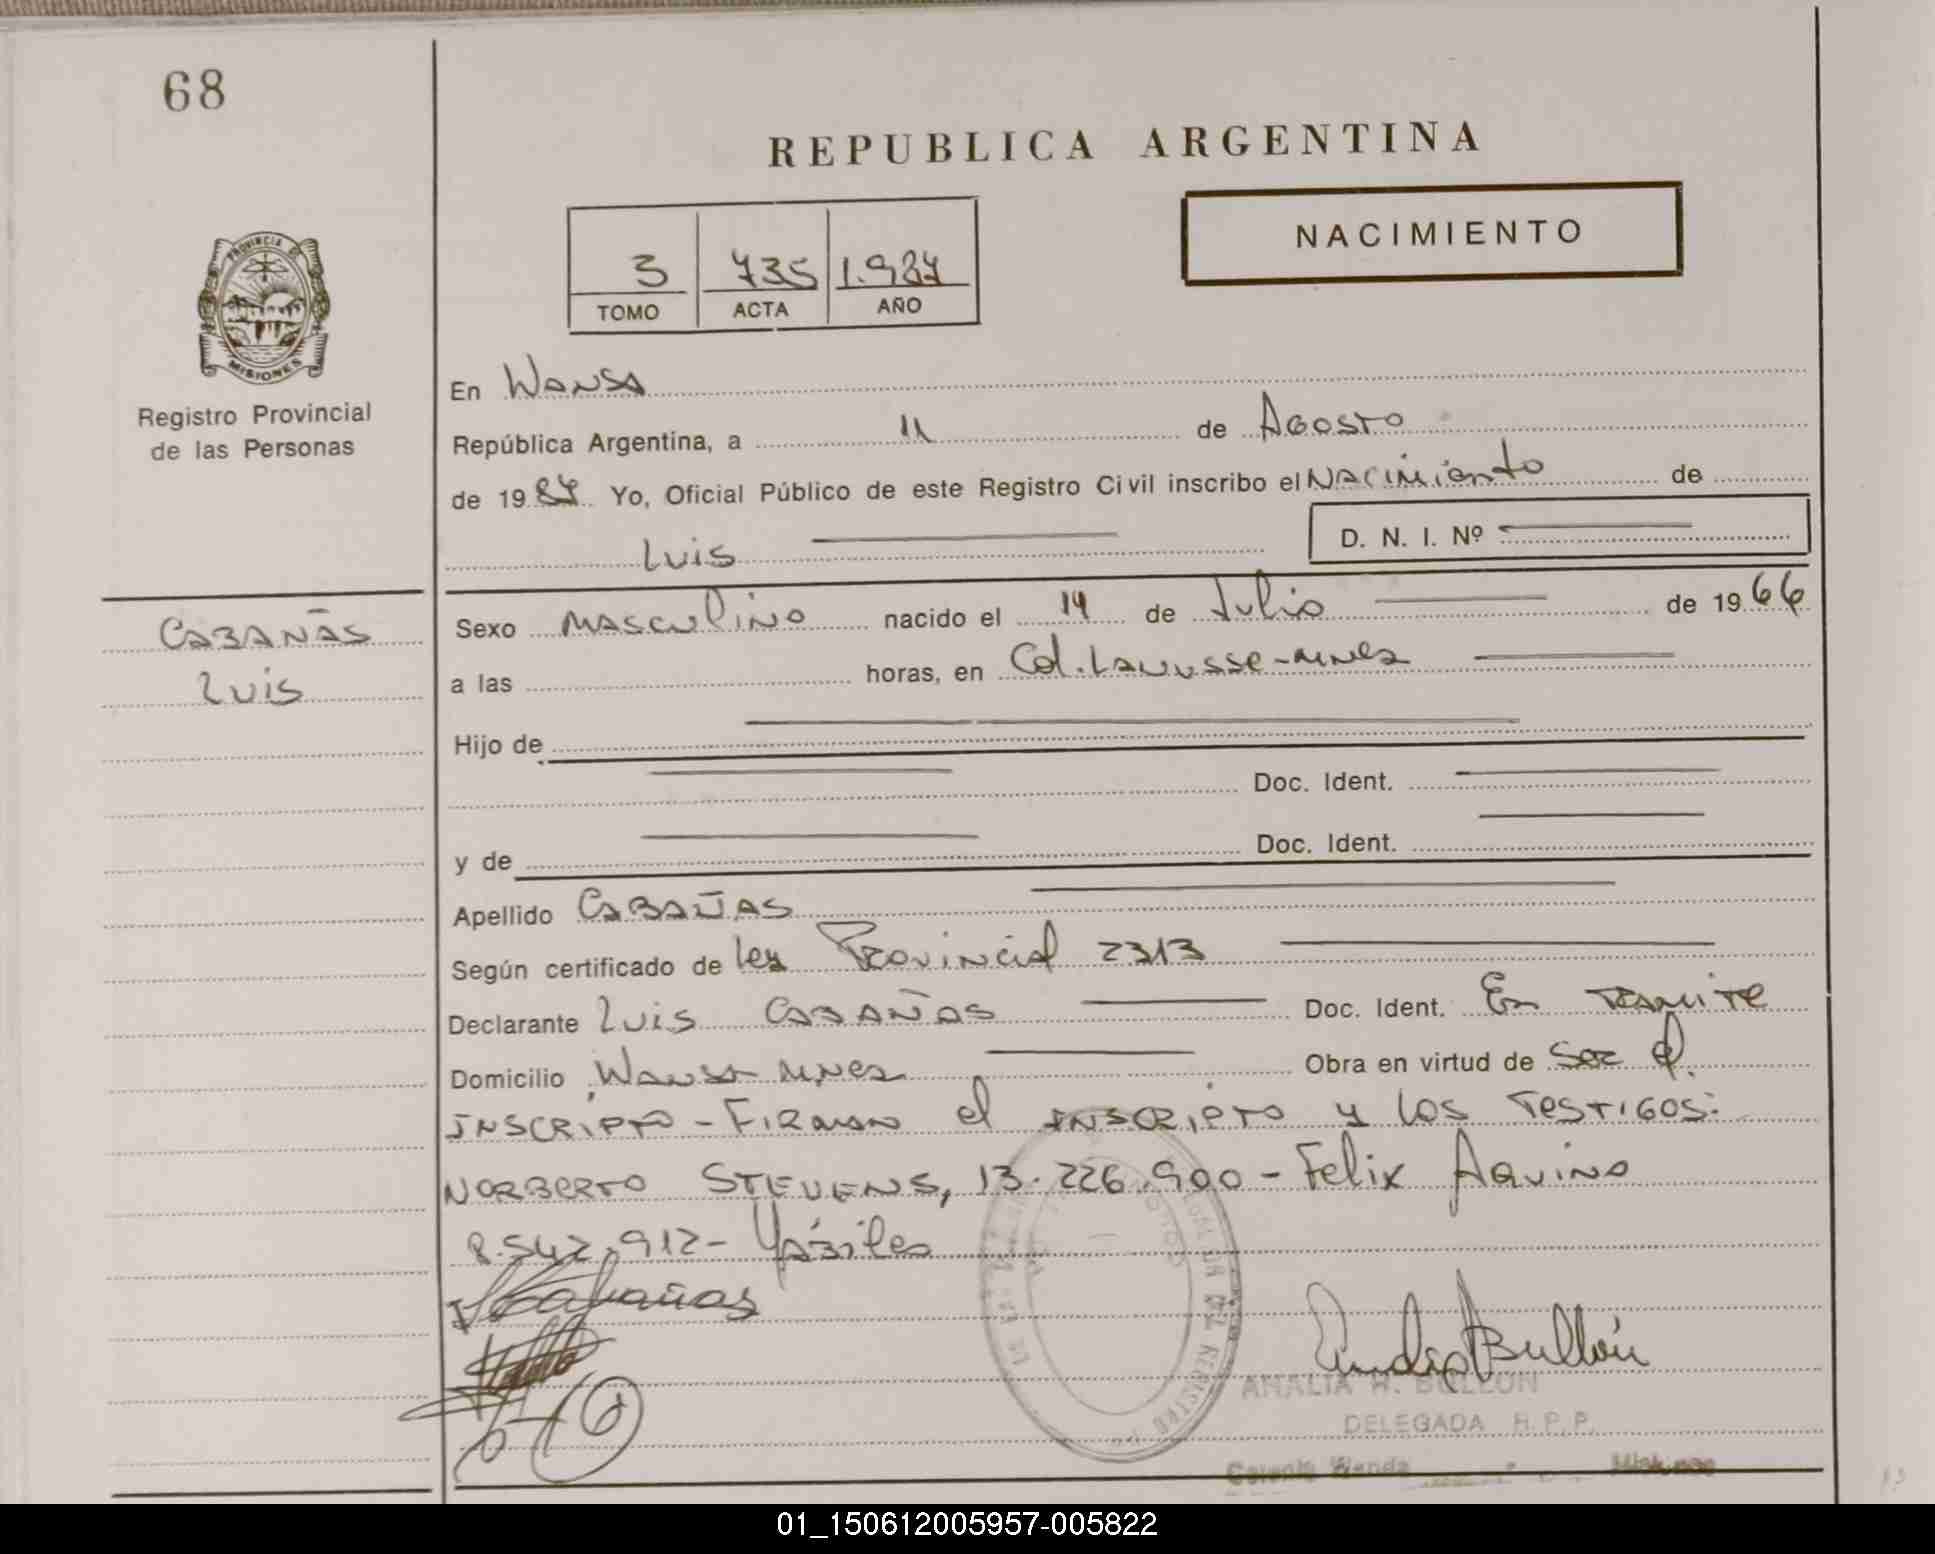 68
REPUBLICA ARGENTINA
NACIMIENTO
3 735 1.987
TOMO ACTA AÑO
PROVINCIA DE
MISIONES
Registro Provincial
de las Personas
En Wanda
República Argentina, a 11 de Agosto
de 1987 Yo, Oficial Público de este Registro Civil inscribo el Nacimiento de
Luis D. N. I. Nº
CABAÑAS
Luis
Sexo Masculino nacido el 14 de Julio de 1966
a las horas, en Col. Lanusse-Mnes
Hijo de
Doc. Ident.
y de Doc. Ident.
Apellido CABAÑAS
Según certificado de Ley Provincial 2313
Declarante Luis CABAÑAS Doc. Ident. En Tramite
Domicilio Wanda Mnes Obra en virtud de Ser el
inscripto - Firman el inscripto y los Testigos:
Norberto STEVENS, 13.226.900 - Felix Aquino
8.542.912 -
Cabañas
AMALIA H. BULLON
DELEGADA R.P.P.
Colonia Wanda Misiones
01_150612005957-005822